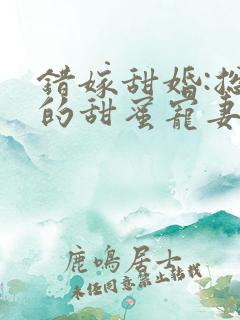 錯嫁甜婚:總
的甜蜜寵妻
鹿鳴居士
未经同意禁止转载